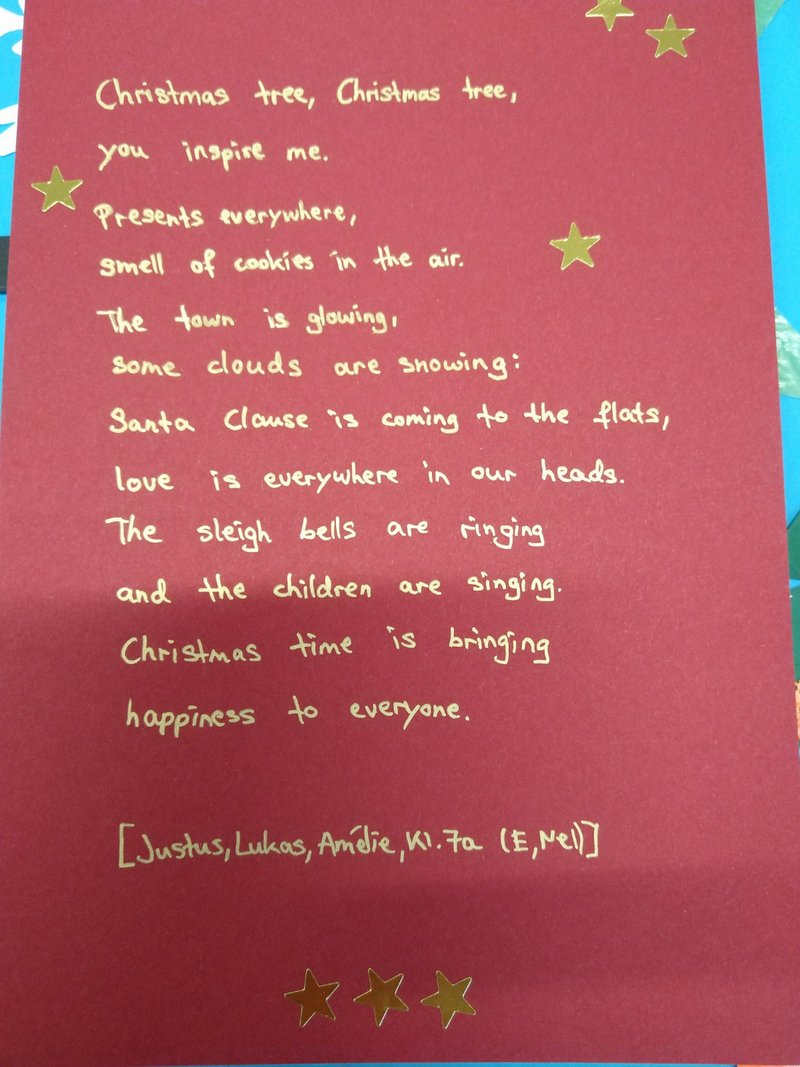 Christmas tree, Christmas tree,
you inspire me.
Presents everywhere,
smell of cookies in the air.
The town is glowing,
some clouds are snowing:
Santa Clause is coming to the flats,
love is everywhere in our heads.
The sleigh bells are ringing
and the children are singing.
Christmas time is bringing
happiness to everyone.
[Justus, Lukas, Amélie, Kl. 7a (E, Nel)]